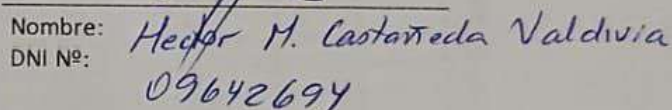 Nombre: Hector M. Castañeda Valdivia
DNI Nº:
09642694